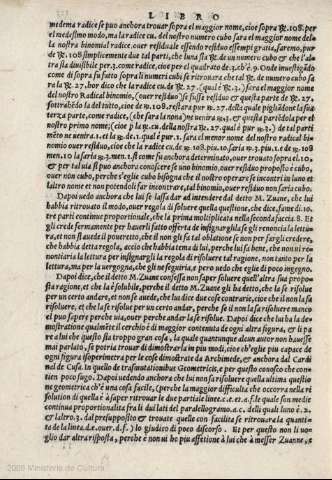 LIBRO
medema radice se puo anchora trouar sopra el maggior nome, cioe sopra ℞. 108. per
el medesimo modo, ma la radice cu. del nostro numero cubo sara el maggior nome del-
la nostra binomial radice. ouer residuale essendo residuo essempi gratia, faremo, pur
de ℞. 108 simplicemente due tal parti, che luna sia ℞. de un numero cubo et che l'al-
tra sia diuisibile per 3. come radice, cioe per el quadrato de 3. ch'è 9. Onde inuestigādo
come di sopra fu fatto sopra li numeri cubi se ritrouara che tal ℞. de numero cubo sa
ra la ℞. 27. hor dico che la radice cu. de ℞. 27. (qual è ℞. 3.) sara el maggior nome
del nostro Radical binomio, (ouer residuo se fusse residuo) et questa parte de ℞. 27.
sottrabēdo la del tutto, cioe de ℞. 108. restara pur ℞. 27. della quale pigliādone la sua
terza parte, come radice, (che sara la nona) me uenira ℞ 1/3. et questa partēdola per el
nostro primo nome, (cioe p la ℞. cu. della nostra ℞. 27. qual è pur ℞ 3.) de tal parti
mēto ne uenira 1. et la ℞. de 1. qual è pur 1. sara el menor nome del nostro radical bi
nomio ouer residuo, cioe che la radice cu. de ℞. 108. piu. 10 saria ℞. 3. piu. 1. et de ℞ 108
men. 10 la saria ℞. 3. men. 1. si come fu anchora determinato, ouer trouato sopra el. 10.
et per tal uia si puo anchora conoscere se uno binomio, ouer residuo proposto è cubo,
ouer non cubo, perche s'eglie cubo bisogna che el nostro operare se incontri in luno et
laltro nome et non potendoli far incontrare, tal binomio, ouer residuo non saria cubo.
Dapoi uedo anchora che lui se lassa dar ad intendere dal detto M. Zuane, che lui
habbia ritrouata il modo, ouer regola di soluere quella questione, che dice, fame di. 10.
tre parti continue proportionale, che la prima moltiplicata nella seconda faccia 8. Et
gli crede fermamente per hauerli fatto offerta de insignargliela se egli renoncia la lettu-
ra, et non si auede il pouereto, che il non gli fa tal oblatione se non per fargli credere,
che habbia detta regola, accio che habbia tema di lui, perche lui sa bene, che non ui re-
nontiaria la lettura per insignargli la regola di risoluere tal ragione, non tanto per la
lettura, ma per la uergogna, che gli ne seguiria, pero uedo che eglie di poco ingegno.
Dapoi dice, che il detto M. Zuane confessa non saper soluere quell'altra sua propo-
sta ragione, et che la è solubile, perche il detto M. Zuane gli ha detto, che la se risolue
per un certo andare, et non se auede, che lui dice due cose contrarie, cioe che il non la sa
risoluere, et che la se risolue per un certo andar, perche se il non la sa risoluere manco
el puo sapere perche uia, ouer perche andar la se risolue. Dapoi dice che lui ha la de-
mostratione qualmēte il cerchio è di maggior contenuta de ogni altra figura, et li pa
re a lui che questo sia troppo gran cosa, la quale quantunque alcun autor non hauesse
mai parlato, se potria trouar di dimostrarla in piu modi, cioe ch'eglie piu capace de
ogni figura isoperimetra per le cose dimostrate da Archimede, et anchora dal Cardi
nel de Cusa. In quello de trasmutationibus Geometricis, e per questo conosco che con-
siste poco sugo. Dapoi uedendo anchora che lui non sa risoluere quella ultima questio
ne geometrica ch'è una cosa facile, (perche la maggior difficulta che occorra nella ri
solution di quella è à saper ritrouar le due partiale linee a.e. et a.f. le quale son medie
continua proportionalita fra li dui lati del parallelogramo a.c. delli quali luno è. 2.
et l'altro. 3. dal presupposito et trouate quelle con facilita se ritrouara la quanti-
ta de la linea. d.e. ouer. d.f.) lo giudico di poco discorso. Et per questo non li uo-
glio dar altra risposta, perche è non ui ho piu affettione à lui che à messer Zuanne,
2008 Ministerio de Cultura